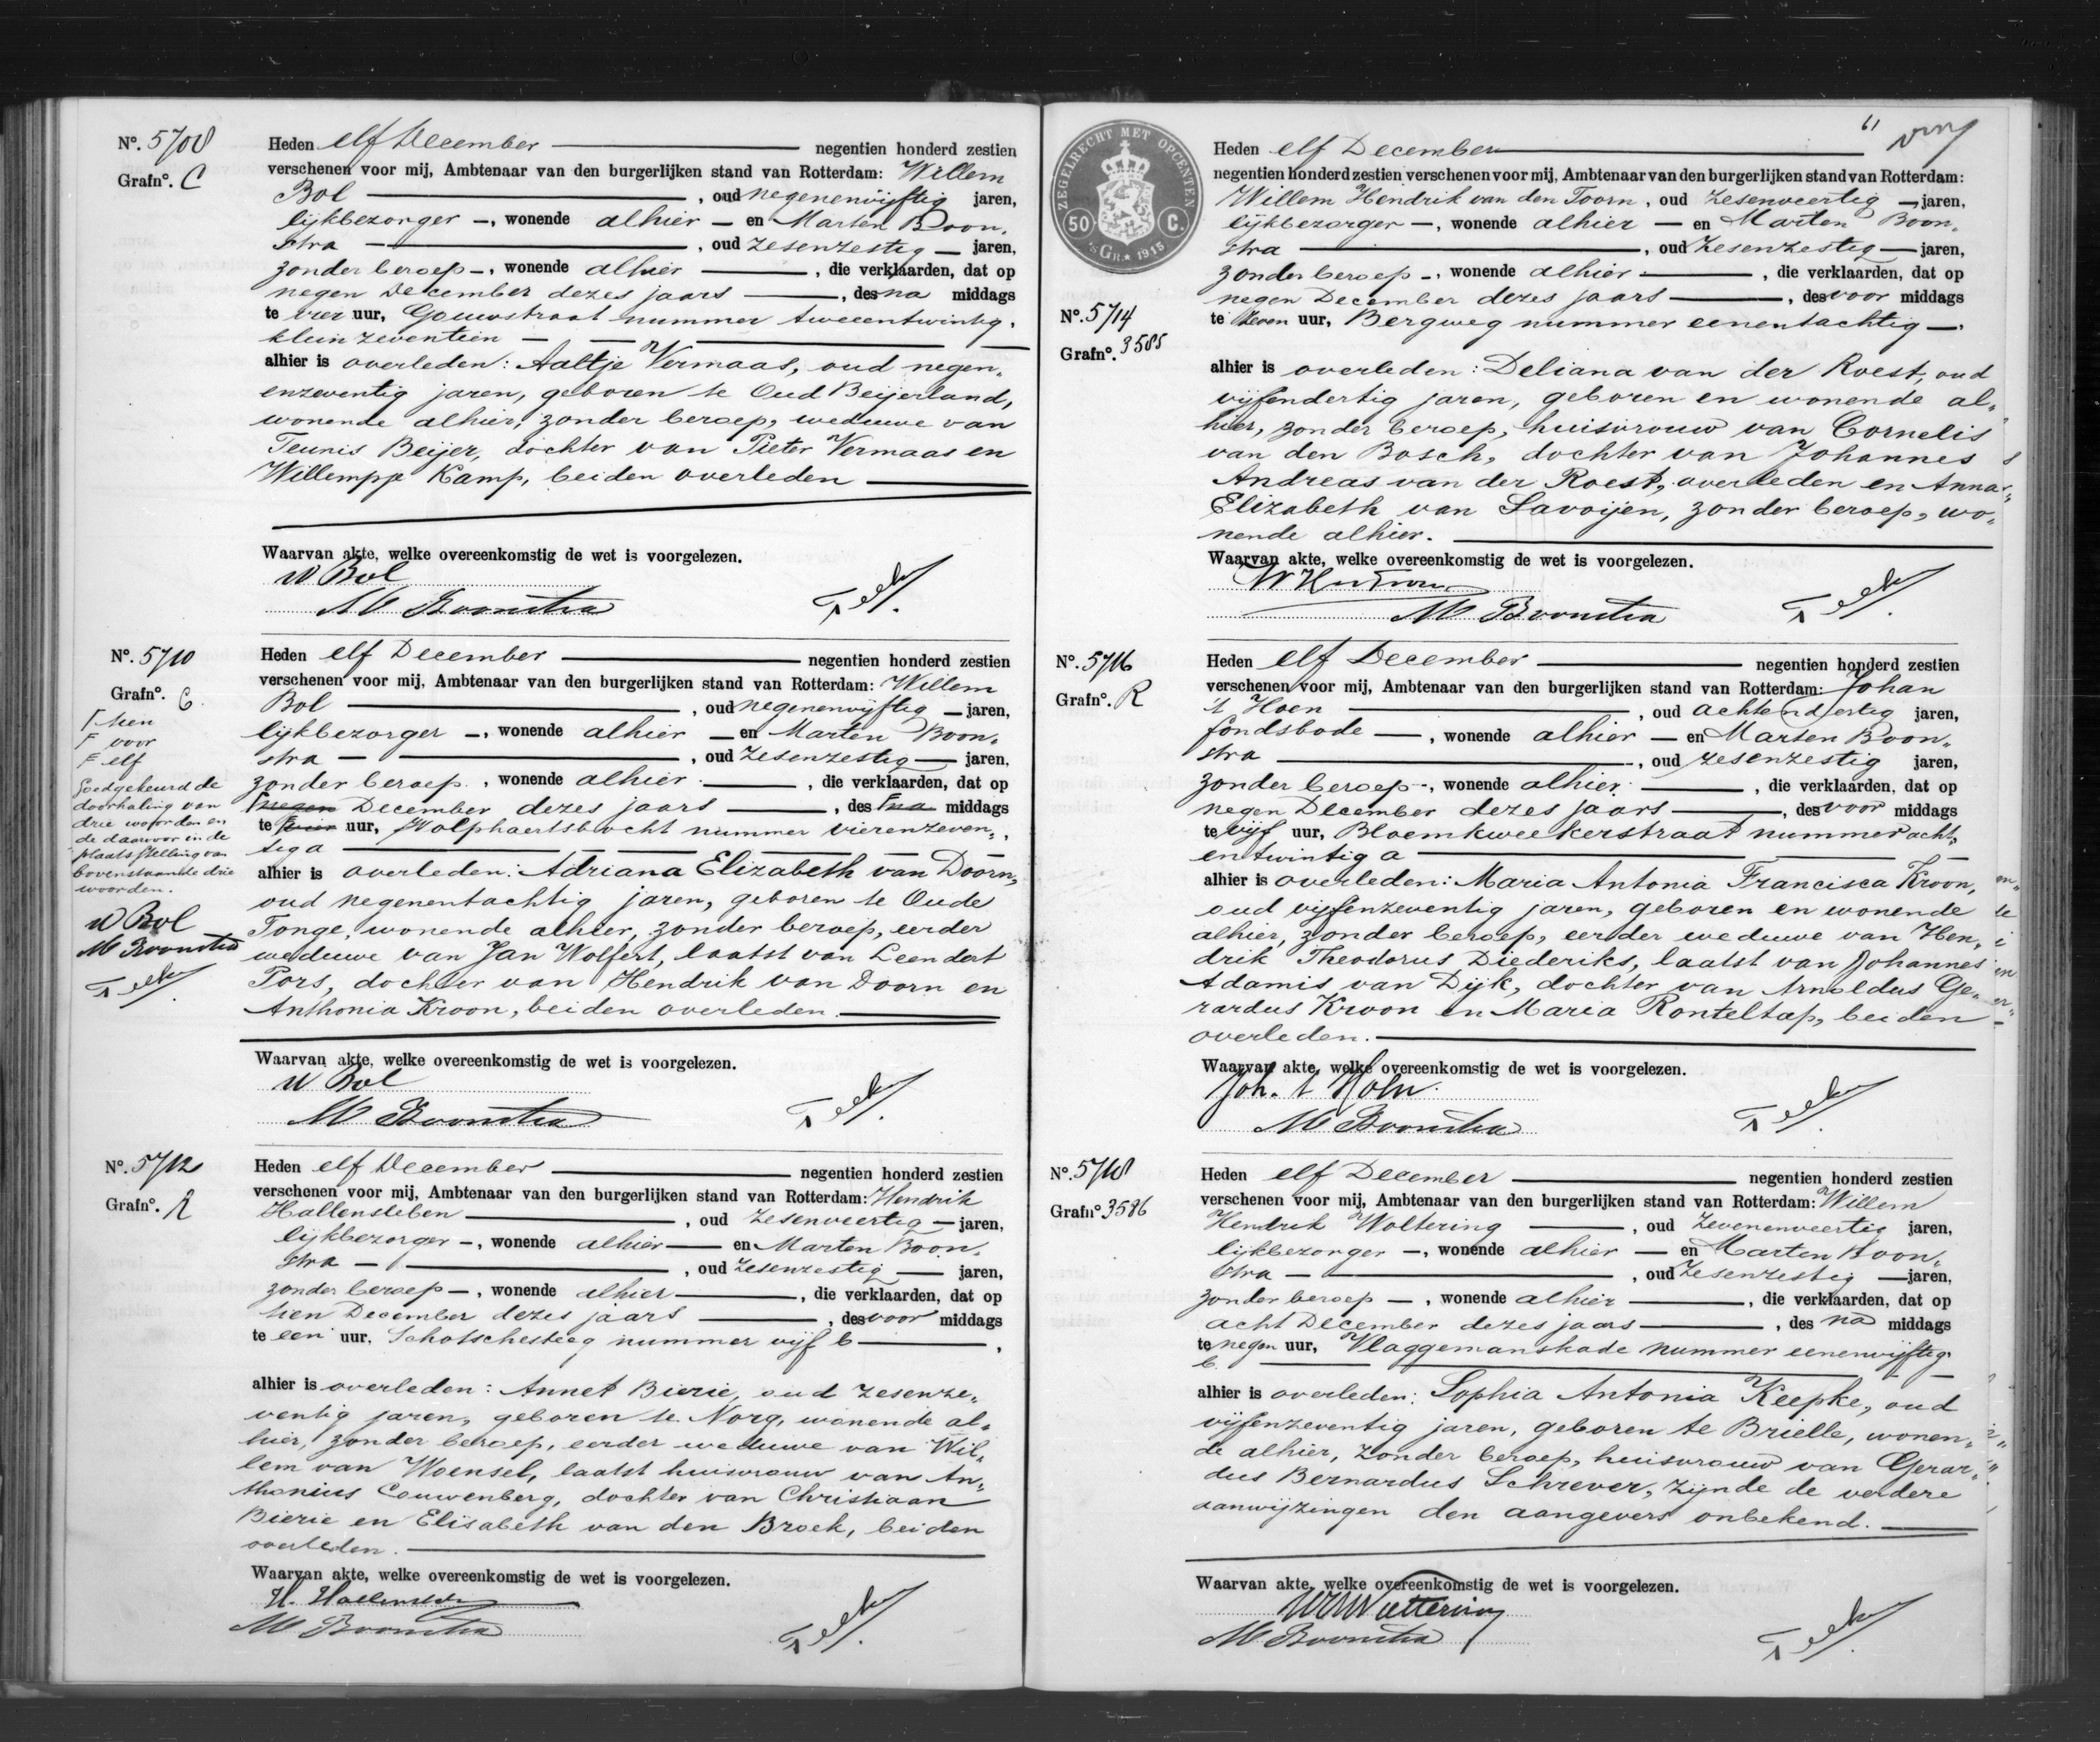 No. 5708
Grafno. C
Heden elf December negentien honderd zestien
verschenen voor mij, Ambtenaar van den burgerlijken stand van Rotterdam: Willem
Bol , oud negenenvijftig jaren,
lijkbezorger , wonende alhier en Marten Boon„
stra , oud zesenzestig jaren,
zonder beroep , wonende alhier , die verklaarden, dat op
negen December dezes jaars , des na middags
te vier uur, Gouwstraat nummer tweeentwintig,
klein zeventien
alhier is overleden: Aaltje Vermaas, oud negen„
enzeventig jaren, geboren te Oud Beijerland,
wonende alhier, zonder beroep, weduwe van
Teunis Beijer, dochter van Pieter Vermaas en
Willempje Kamp, beiden overleden
Waarvan akte, welke overeenkomstig de wet is voorgelezen.
W Bol
M Boonstra
No. 5710
Grafno. C
F tien
F voor
F elf
Goedgekeurd de
doorhaling van
drie woorden en
de daarvoor in de
plaatsstelling van
bovenstaande drie
woorden.
W Bol
M Boonstra
Heden elf December negentien honderd zestien
verschenen voor mij, Ambtenaar van den burgerlijken stand van Rotterdam: Willem
Bol , oud negenenvijftig jaren,
lijkbezorger , wonende alhier en Marten Boon„
stra , oud zesenzestig jaren,
zonder beroep , wonende alhier , die verklaarden, dat op
F negen December dezes jaars , des F na middags
te F vier uur, Wolphaertsbocht nummer vierenzeven„
tig a
alhier is overleden: Adriana Elizabeth van Doorn,
oud negenentachtig jaren, geboren te Oude
Tonge, wonende alhier, zonder beroep, eerder
weduwe van Jan Wolfert, laatst van Leendert
Pors, dochter van Hendrik van Doorn en
Anthonia Kroon, beiden overleden.
Waarvan akte, welke overeenkomstig de wet is voorgelezen.
W Bol
M Boonstra
No. 5712
Grafno. R
Heden elf December negentien honderd zestien
verschenen voor mij, Ambtenaar van den burgerlijken stand van Rotterdam: Hendrik
Hallensleben , oud zesenveertig jaren,
lijkbezorger , wonende alhier en Marten Boon„
stra , oud zesenzestig jaren,
zonder beroep , wonende alhier , die verklaarden, dat op
tien December dezes jaars , des voor middags
te een uur, Schotschesteeg nummer vijf b ,
alhier is overleden: Annet Bierie, oud zesenze„
ventig jaren, geboren te Norg, wonende al„
hier, zonder beroep, eerder weduwe van Wil„
lem van Woensel, laatst huisvrouw van An„
thonius Couwenberg, dochter van Christiaan
Bierie en Elisabeth van den Broek, beiden
overleden.
Waarvan akte, welke overeenkomstig de wet is voorgelezen.
H. Hallensleben
M Boonstra
61
ZEGELRECHT MET OPCENTEN
50 C.
'sGR. 1915
No. 5714
Grafno. 3585
Heden elf December
negentien honderd zestien verschenen voor mij, Ambtenaar van den burgerlijken stand van Rotterdam:
Willem Hendrik van den Toorn , oud zesenveertig jaren,
lijkbezorger , wonende alhier en Marten Boon„
stra , oud zesenzestig jaren,
zonder beroep , wonende alhier , die verklaarden, dat op
negen December dezes jaars , des voor middags
te zeven uur, Bergweg nummer eenentachtig
alhier is overleden: Deliana van der Roest, oud
vijfendertig jaren, geboren en wonende al„
hier, zonder beroep, huisvrouw van Cornelis
van den Bosch, dochter van Johannes
Andreas van der Roest, overleden en Anna
Elizabeth van Savoijen, zonder beroep, wo„
nende alhier.
Waarvan akte, welke overeenkomstig de wet is voorgelezen.
M Boonstra
No. 5716
Grafno. R
Heden elf December negentien honderd zestien
verschenen voor mij, Ambtenaar van den burgerlijken stand van Rotterdam: Johan
't Hoen , oud achtendertig jaren,
fondsbode , wonende alhier en Marten Boon„
stra , oud zesenzestig jaren,
zonder beroep , wonende alhier , die verklaarden, dat op
negen December dezes jaars , des voor middags
te vijf uur, Bloemkweekerstraat nummer acht„
entwintig a
alhier is overleden: Maria Antonia Francisca Kroon,
oud vijfenzeventig jaren, geboren en wonende
alhier, zonder beroep, eerder weduwe van Hen„
drik Theodorus Diederiks, laatst van Johannes
Adamis van Dijk, dochter van Arnoldus Ge„
rardus Kroon en Maria Ronteltap, beiden
overleden.
Waarvan akte, welke overeenkomstig de wet is voorgelezen.
Joh. 't Hoen
M Boonstra
No. 5718
Grafno 3586
Heden elf December negentien honderd zestien
verschenen voor mij, Ambtenaar van den burgerlijken stand van Rotterdam: Willem
Hendrik Woltering , oud zevenenveertig jaren,
lijkbezorger , wonende alhier en Marten Boon„
stra , oud zesenzestig jaren,
zonder beroep , wonende alhier , die verklaarden, dat op
acht December dezes jaars , des na middags
te negen uur, Vlaggemanskade nummer eenenvijftig
b.
alhier is overleden: Sophia Antonia Keepke, oud
vijfenzeventig jaren, geboren te Brielle, wonen„
de alhier, zonder beroep, huisvrouw van Gerar„
dus Bernardus Schrever, zijnde de verdere
aanwijzingen den aangevers onbekend.
Waarvan akte, welke overeenkomstig de wet is voorgelezen.
WHWoltering
M Boonstra